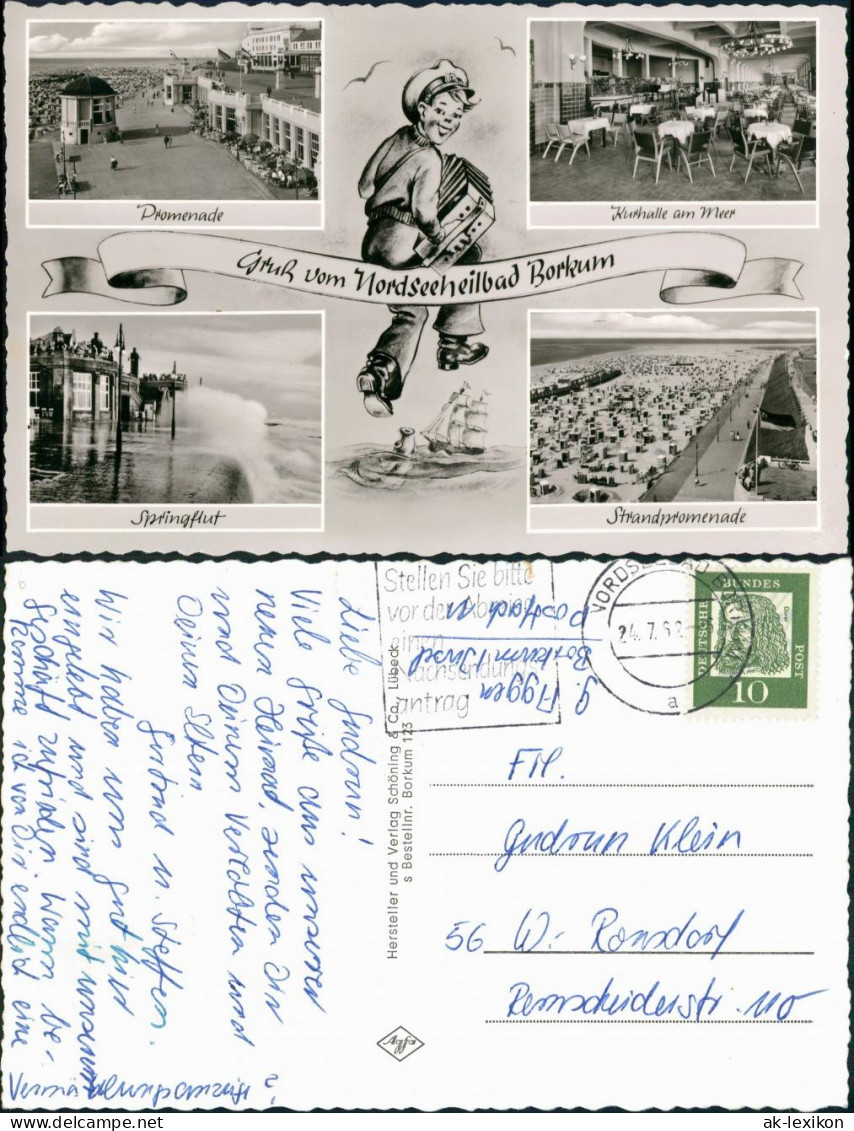 Promenade
Kurhalle am Meer
Gruß vom Nordseeheilbad Borkum
Springflut
Strandpromenade
Stellen Sie bitte
vor der
einen
Nachsendungs-
antrag
NORDSEEBAD BORKUM
24.7.62
a
DEUTSCHE BUNDESPOST
10
G. Aggen
Borkum / Insel
Postfach
Liebe Gudrun!
Viele Grüße aus unserer
neuen Heimat, senden Dir
und Deinem Verlobten und
Deinen Eltern
Gertrud u. Steffen.
Wir haben uns gut hier
eingelebt und sind mit unserem
Geschäft zufrieden. Wann be-
komme ich von Dir endlich eine
Vermählungsanzeige?
Hersteller und Verlag Schöning & Co., Lübeck
s Bestellnr. Borkum 123
Agfa
Frl.
Gudrun Klein
56 W.-Ronsdorf
Remscheiderstr. 110
ak-lexikon